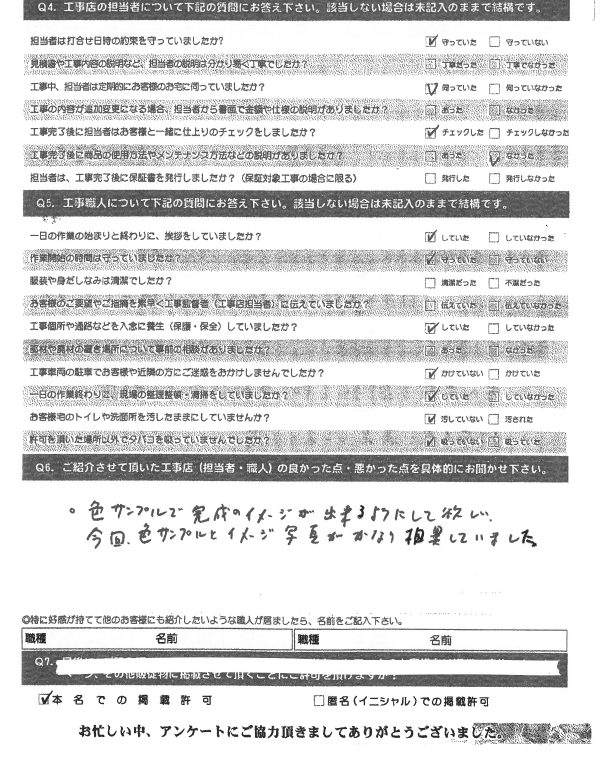 Q4. 工事店の担当者について下記の質問にお答え下さい。該当しない場合は未記入のままで結構です。
担当者は打合せ日時の約束を守っていましたか？ ☑ 守っていた □ 守っていない
見積書や工事内容の説明など、担当者の説明は分かり易く丁寧でしたか？ □ 丁寧だった □ 丁寧でなかった
工事中、担当者は定期的にお客様のお宅に伺っていましたか？ ☑ 伺っていた □ 伺っていなかった
工事の内容が追加変更になる場合、担当者から書面で金額や仕様の説明がありましたか？ □ あった □ なかった
工事完了後に担当者はお客様と一緒に仕上りのチェックをしましたか？ ☑ チェックした □ チェックしなかった
工事完了後に商品の使用方法やメンテナンス方法などの説明がありましたか？ □ あった ☑ なかった
担当者は、工事完了後に保証書を発行しましたか？（保証対象工事の場合に限る） □ 発行した □ 発行しなかった
Q5. 工事職人について下記の質問にお答え下さい。該当しない場合は未記入のままで結構です。
一日の作業の始まりと終わりに、挨拶をしていましたか？ ☑ していた □ していなかった
作業開始の時間は守っていましたか？ ☑ 守っていた □ 守っていない
服装や身だしなみは清潔でしたか？ □ 清潔だった □ 不潔だった
お客様のご要望やご指摘を素早く工事監督者（工事店担当者）に伝えていましたか？ □ 伝えていた □ 伝えていなかった
工事個所や通路などを入念に養生（保護・保全）していましたか？ ☑ していた □ していなかった
部材や廃材の置き場所について事前の相談がありましたか？ □ あった □ なかった
工事車両の駐車でお客様や近隣の方にご迷惑をおかけしませんでしたか？ ☑ かけていない □ かけていた
一日の作業終わりに、現場の整理整頓・清掃をしていましたか？ ☑ していた □ していなかった
お客様宅のトイレや洗面所を汚したままにしていませんか？ ☑ 汚していない □ 汚された
許可を頂いた場所以外でタバコを吸っていませんでしたか？ ☑ 吸っていない □ 吸っていた
Q6. ご紹介させて頂いた工事店（担当者・職人）の良かった点・悪かった点を具体的にお聞かせ下さい。
。色サンプルで完成のイメージが出来るようにして欲しい。
今回、色サンプルとイメージ写真がかなり相異していました
◎特に好感が持てて他のお客様にも紹介したいような職人が居ましたら、名前をご記入下さい。
職種 名前 職種 名前
Q7.
ジ、その他販促物に掲載させて頂くことにご許可を頂けますか？
☑本名での掲載許可 □匿名(イニシャル)での掲載許可
お忙しい中、アンケートにご協力頂きましてありがとうございました。